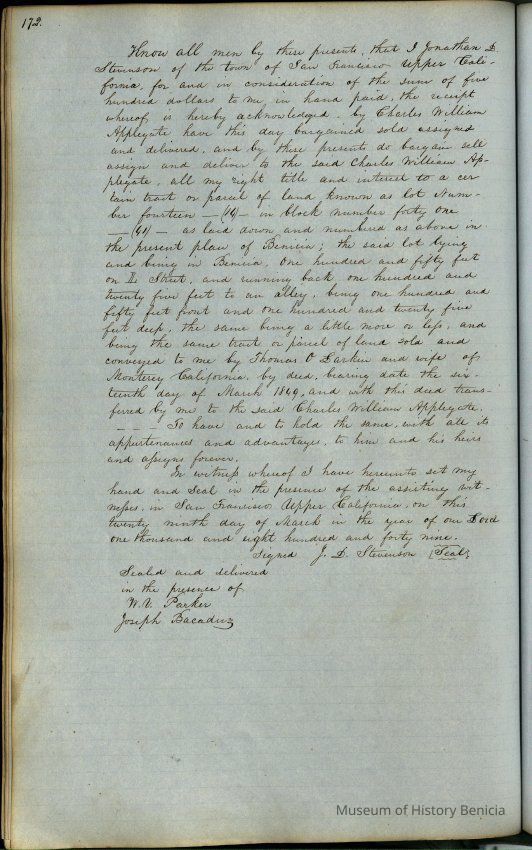 172.
Know all men by these presents, that I Jonathan D.
Stevenson of the town of San Francisco Upper Cali-
fornia, for and in consideration of the sum of five
hundred dollars to me, in hand paid, the receipt
whereof is hereby acknowledged, by Charles William
Applegate have this day bargained sold assigned
and delivered, and by these presents do bargain sell
assign and deliver to the said Charles William Ap-
plegate, all my right title and interest to a cer
tain tract or parcel of land known as lot Num-
ber fourteen — (14) — in block number forty one
— (41) — as laid down and numbered as above in
the present plan of Benicia; the said lot lying
and being in Benicia, One hundred and fifty feet
on Street, and running back one hundred and
twenty five feet to an alley, being one hundred and
fifty feet front and one hundred and twenty five
feet deep, the same being a little more or less, and
being the same tract or parcel of land sold and
conveyed to me by Thomas O Larkin and wife of
Monterey California, by deed, bearing date the six-
teenth day of March 1849, and with this deed trans-
ferred by me to the said Charles William Applegate.
— — — — To have and to hold the same, with all its
appurtenances and advantages, to him and his heirs
and assigns forever.
In witness whereof I have hereunto set my
hand and Seal in the presence of the assisting wit-
nesses, in San Francisco Upper California, on this
twenty ninth day of March in the year of our Lord
one thousand and eight hundred and forty nine.
Signed J. D. Stevenson {Seal}
Sealed and delivered
in the presence of
Parker
Joseph
Museum of History Benicia